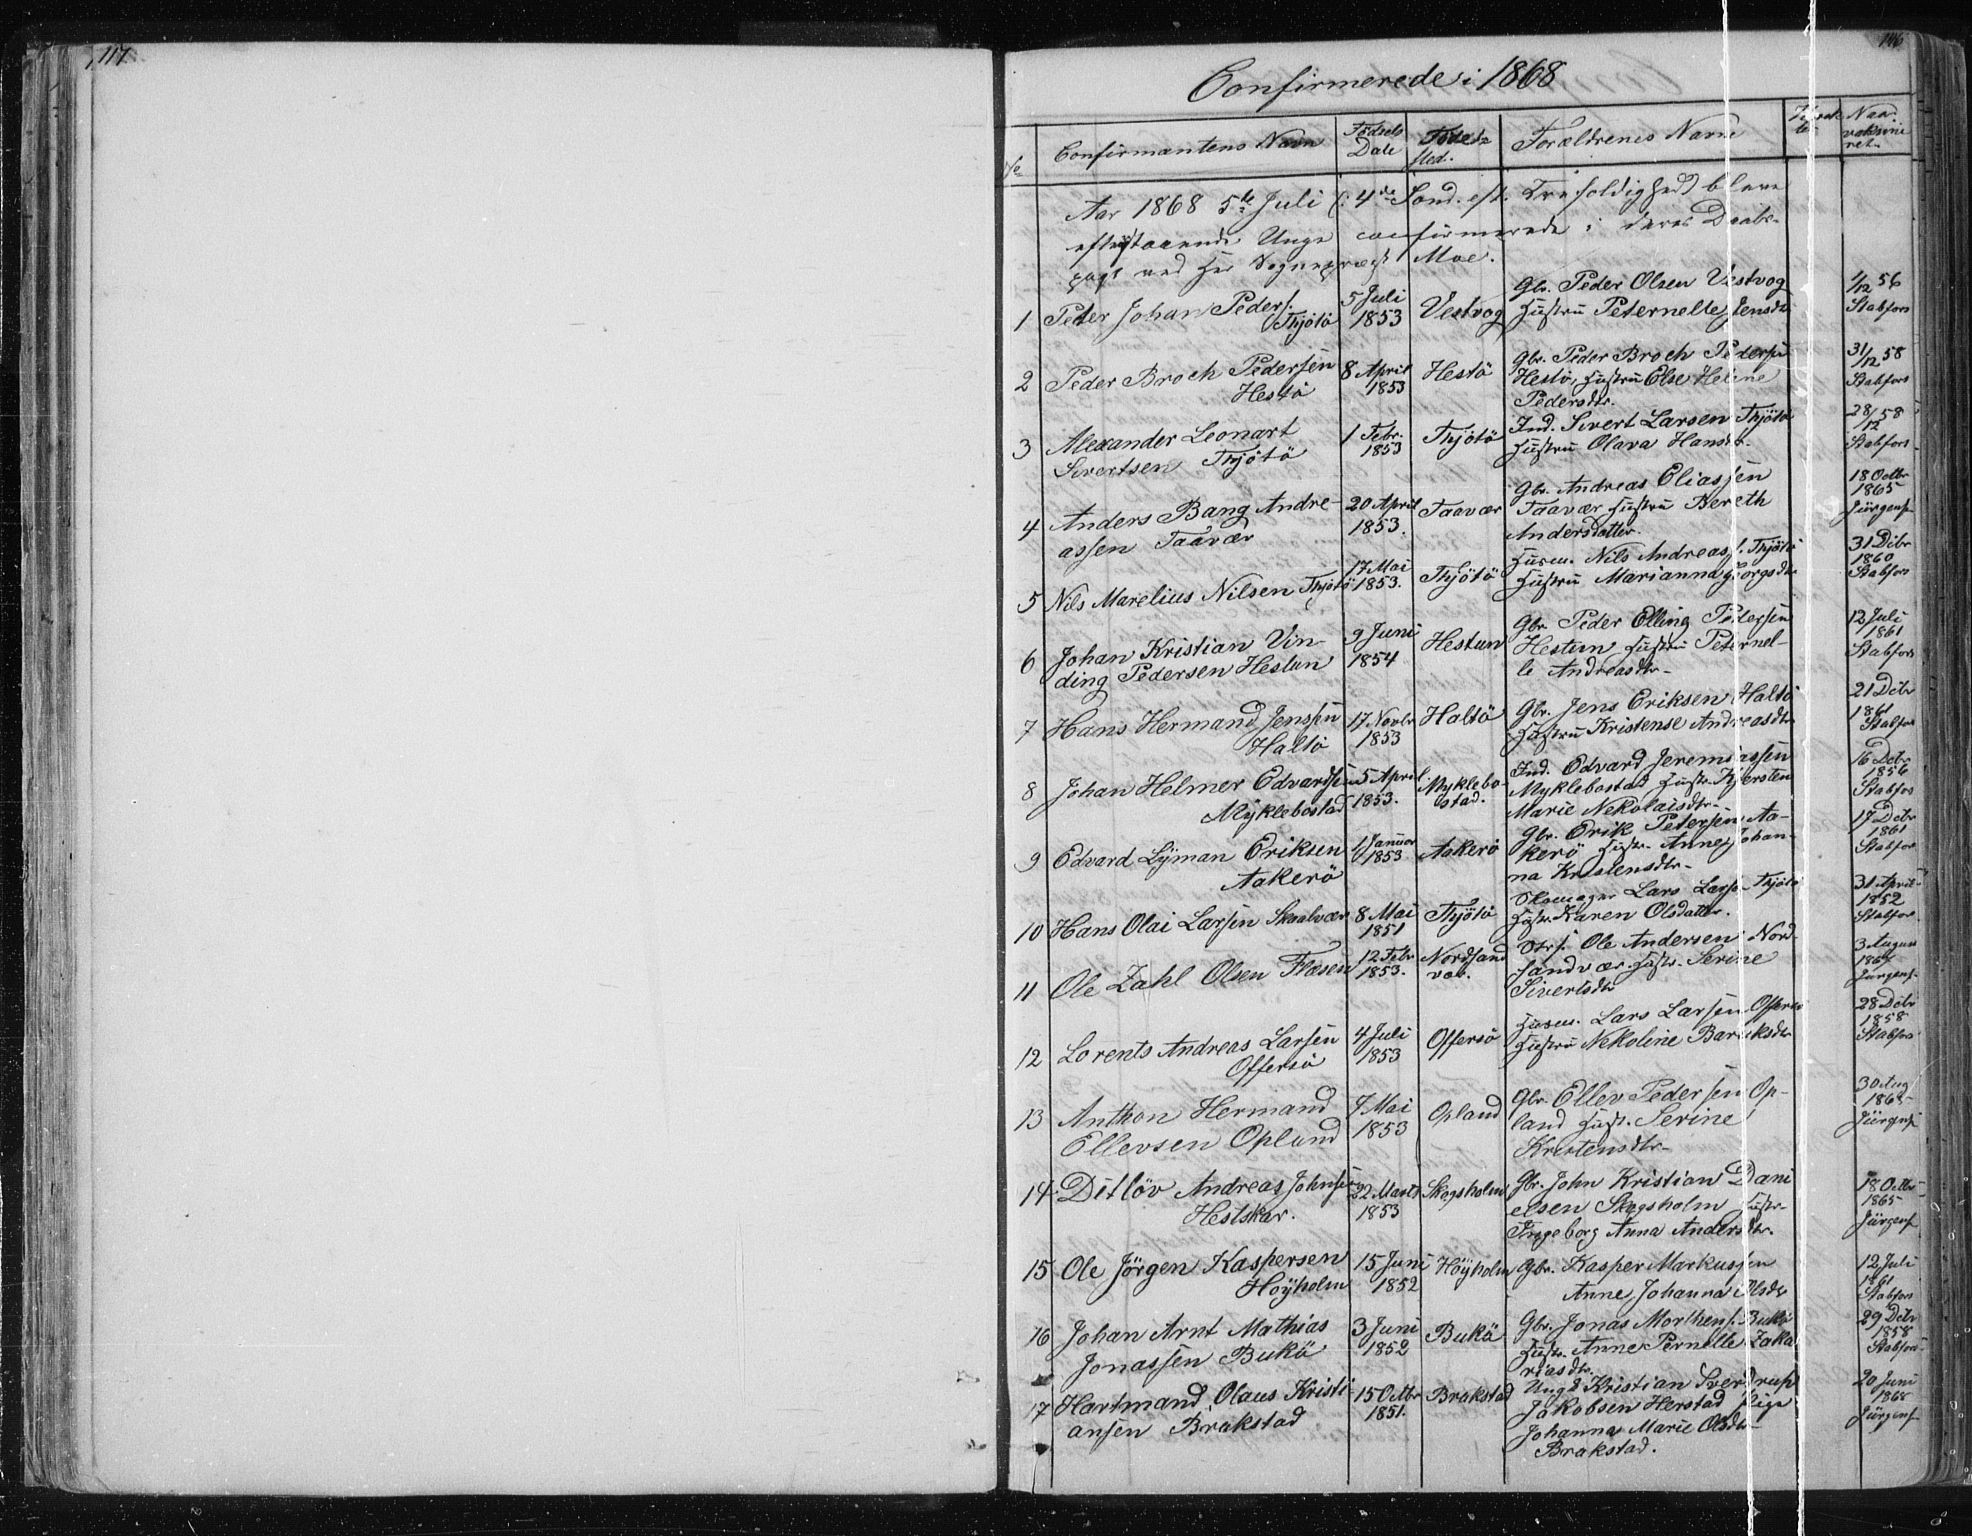 117
146
Confirmerede i 1868
No
Confirmantens Navn
Fødsels
Date
Fødested.
Forældrenes Navne
Naar
vaksine
ret.
Aar 1868 5te Juli (: 4de Sønd. eft. Trefoldighed bleve
efterstaaende Unge confirmerede i deres Daabs-
pagt ved Hr Sognepræst Moe.
1 Peter Johan Peders.
Thjötö
5 Juli
1853
Vestvog
Gbr. Peder Olsen Vestvog
Hustru Peternelle Jensdtr
1/12 56
Stabfors
2 Peder Broch Pedersen
Hestö
8 April
1853
Hestö
Gbr. Peder Broch Pedersen
Hestö, Hustru Else Helene
Pedersdtr.
31/12 58
Stabfors
3 Alexander Leonart
Sivertsen Thjötö
1 Febr.
1853
Thjötö
Ind. Sivert Larsen Thjötö
Hustru Olava Hansdr.
28/12 58
Stabfors
4 Anders Bang Andre-
assen Taavær
20 April
1853.
Taavær
Gbr. Andreas Eliassen
Taavær Hustru Bereth
Andersdatter.
18 Octbr
1865
Jürgens.
5 Nils Marelius Nilsen Thjötö
17 Mai
1853.
Thjötö
Husm. Nils Andreas. Thjötö
Hustru Marianna Georgsdtr
31 Dcbr
1860
Stabfors
6 Johan Kristian Vin-
ding Pedersen Hestun
9 Juni
1854
Hestun
Gbr Peder Elling Pedersen
Hestun Hustru Peternel-
le Andreasdtr-
12 Juli
1861
Stabfors
7 Hans Hermand Jenssen
Haltö
17 Novbr
1853
Haltö
Gbr. Jens Eriksen Haltö
Hustru Kristense Andreasdtr
21 Dcbr
1861
Stabfors
8 Johan Helmer Edvardsen
Myklebostad
5 April
1853.
Myklebo-
stad.
Ind. Edvard Jeremiassen
Myklebostad Hustr. Kjersten
Marie Nekolaisdtr-
16 Dcbr
1856
Stabfors
9 Edvard Lyman Eriksen
Aakerö
1 Januar
1853
Aakerö
Gbr. Erik Petersen Aa-
kerö Hustr. Anne Johan-
na Kristensdtr-
17 Dcbr
1861
Stabfors
10 Hans Olai Larsen Skaalvær
8 Mai
1851
Thjötö
Skomager Lars Larsen Thjötö
Hustr. Karen Olsdatter.
31 April
1852
Stabfor
11 Ole Zahl Olsen Flæsen
12 Febr
1853.
Nordsand
vær.
Ole Andersen Nord-
sandvær. Hustr. Serine
Sivertsdtr
3 August
Jürgens.
12 Lorents Andreas Larsen
Offersö
4 Juli
1853
Offersö
Husm. Lars Larsen Offersö
Hustru Nekoline Baruksdtr
28 Dcbr
1858
Stabfors
13 Anthon Hermand
Ellevsen Opland
7 Mai
1853
Opland
Gbr. Ellev Pedersen Op-
land Hustr. Serine
Kristensdtr-
30 Aug
Jürgens.
14 Ditlöv Andreas Johnsen
Hestskar.
22 Marts
1853
Skogsholm
Gbr. John Kristian Dani
elsen Skogsholm Hustr-
Ingeborg Anna Andersdtr.
18 Octbr
1865
Jürgens.
15 Ole Jörgen Kaspersen
Höyholm
15 Juni
1852
Höyholm
Gbr. Kasper Markussen
Anne Johanna Olsdtr
12 Juli
1861
Stabfors
16 Johan Arnt Mathias
Jonassen Bukö
3 Juni
1852
Bukö
Gbr. Jonas Morthens. Bukö
Hustr. Anne Pernille Zaka
riasdtr.
29 Dcbr
1858
Stabfors
17 Hartmand Olaus Kristi
ansen Brakstad
15 Octbr
1851.
Brakstad
Ungk Kristian Sverdrup
Jakobsen Herstad Pige
Johanna Marie Olsdtr-
Brakstad.
20 Juni
1868
Jürgens.